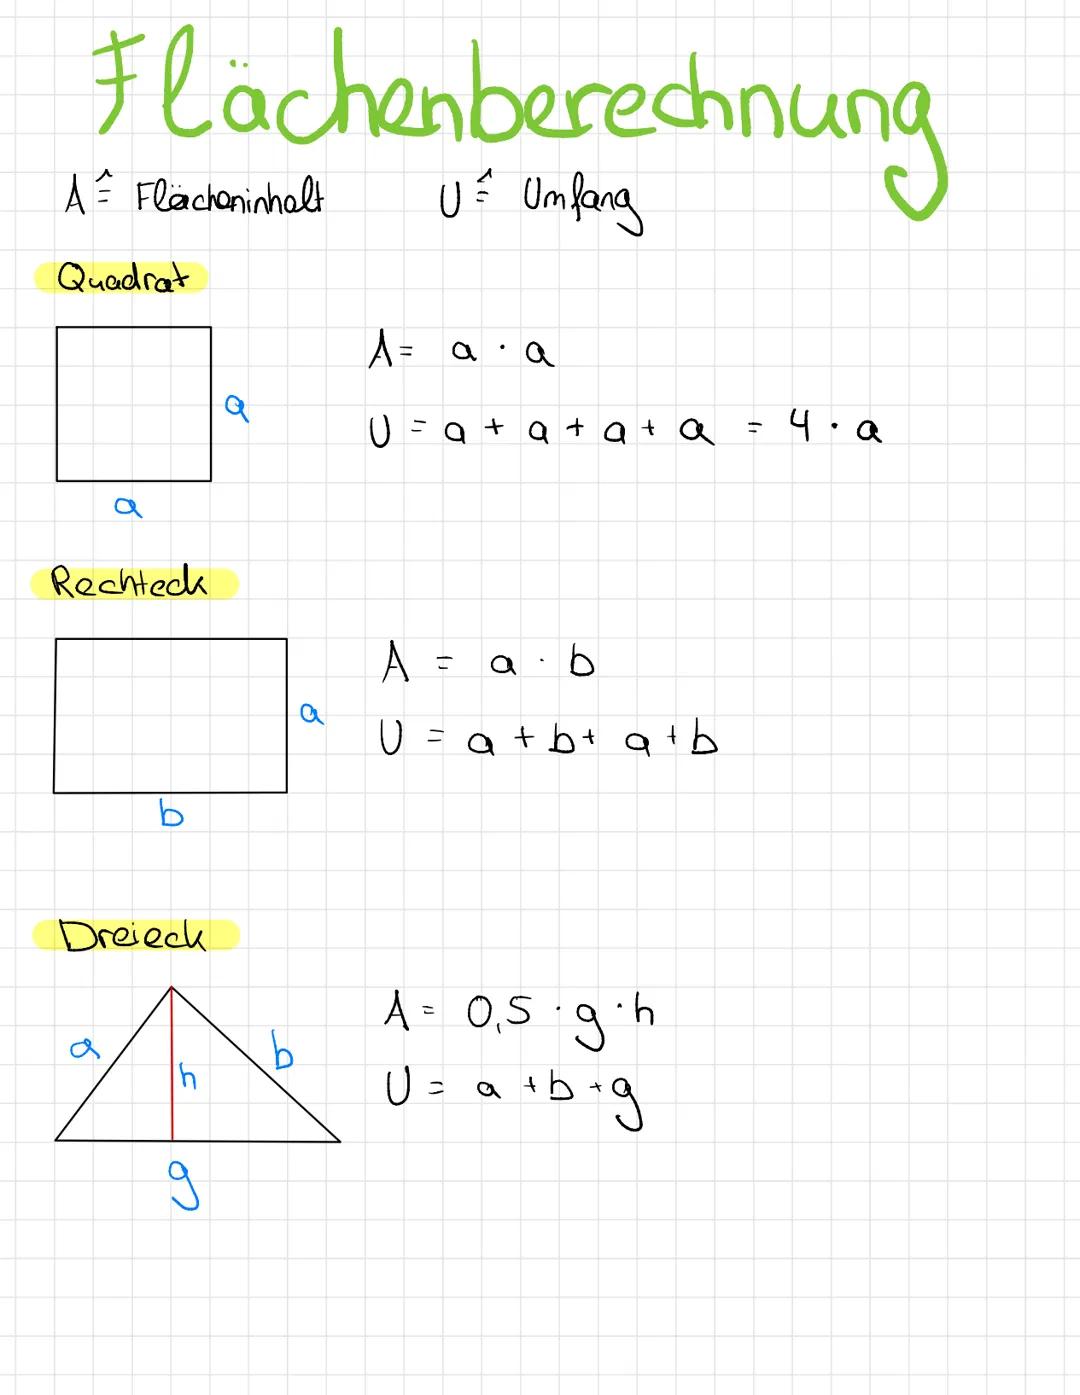 Flächenberechnung
A ≙ Flächeninhalt U ≙ Umfang
Quadrat
A = a · a
U = a + a + a + a = 4 · a
a
a
Rechteck
A = a · b
U = a + b + a + b
a
b
Dreieck
A = 0,5 · g · h
U = a + b + g
a
b
h
g